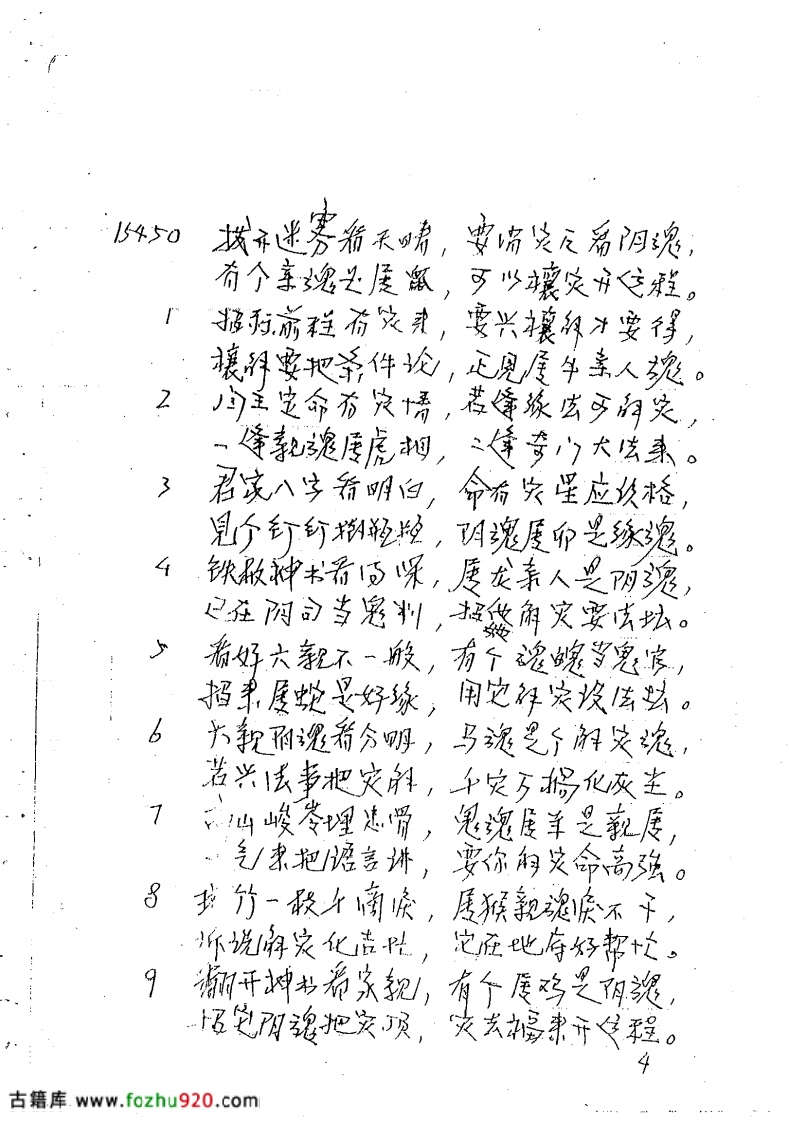 15450 拨开迷雾看天晴，要消灾厄看阴魂，
有个亲魂必属鼠，可以禳灾开运程。
1 招到前程有灾来，要兴禳解才要得，
禳解要把条件论，正见属牛亲人魂。
2 阎王定命有灾情，若逢缘法可解灾，
一逢亲魂属虎相，二逢奇门大法来。
3 君家八字看明白，命有灾星应该格，
见个钉钉树瓶瓶，阴魂属卯是缘魂。
4 铁板神书看得深，属龙亲人是阴魂，
已在阴司当鬼判，招他她解灾要法坛。
5 看好六親不一般，有个魂魄当鬼官，
招来属蛇是好缘，用它解灾设法坛。
6 六親阴魂看分明，马魂是个解灾魂，
若兴法事把灾解，千灾万祸化灰尘。
7 高山峻岺埋忠骨，鬼魂属羊是親属，
气来把语言讲，要你解灾命高强。
8 竹一枝千滴淚，属猴親魂淚不干，
诉说解灾化吉忙，它在地府好帮忙。
9 翻开神书看家親，有个属鸡是阴魂，
招它阴魂把灾顶，灾去福来开运程。
4
古籍库 www.fozhu920.com